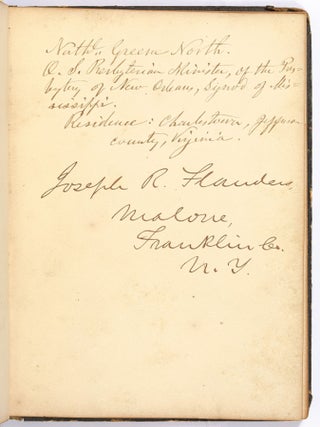 Nathl. Greene North.
O. S. Presbyterian Minister, of the Pres-
bytery of New Orleans, Synod of Mis-
sissippi.
Residence: Charlestown, Jefferson
county, Virginia.
Joseph R. Flanders,
Malone,
Franklin Co.
N. Y.